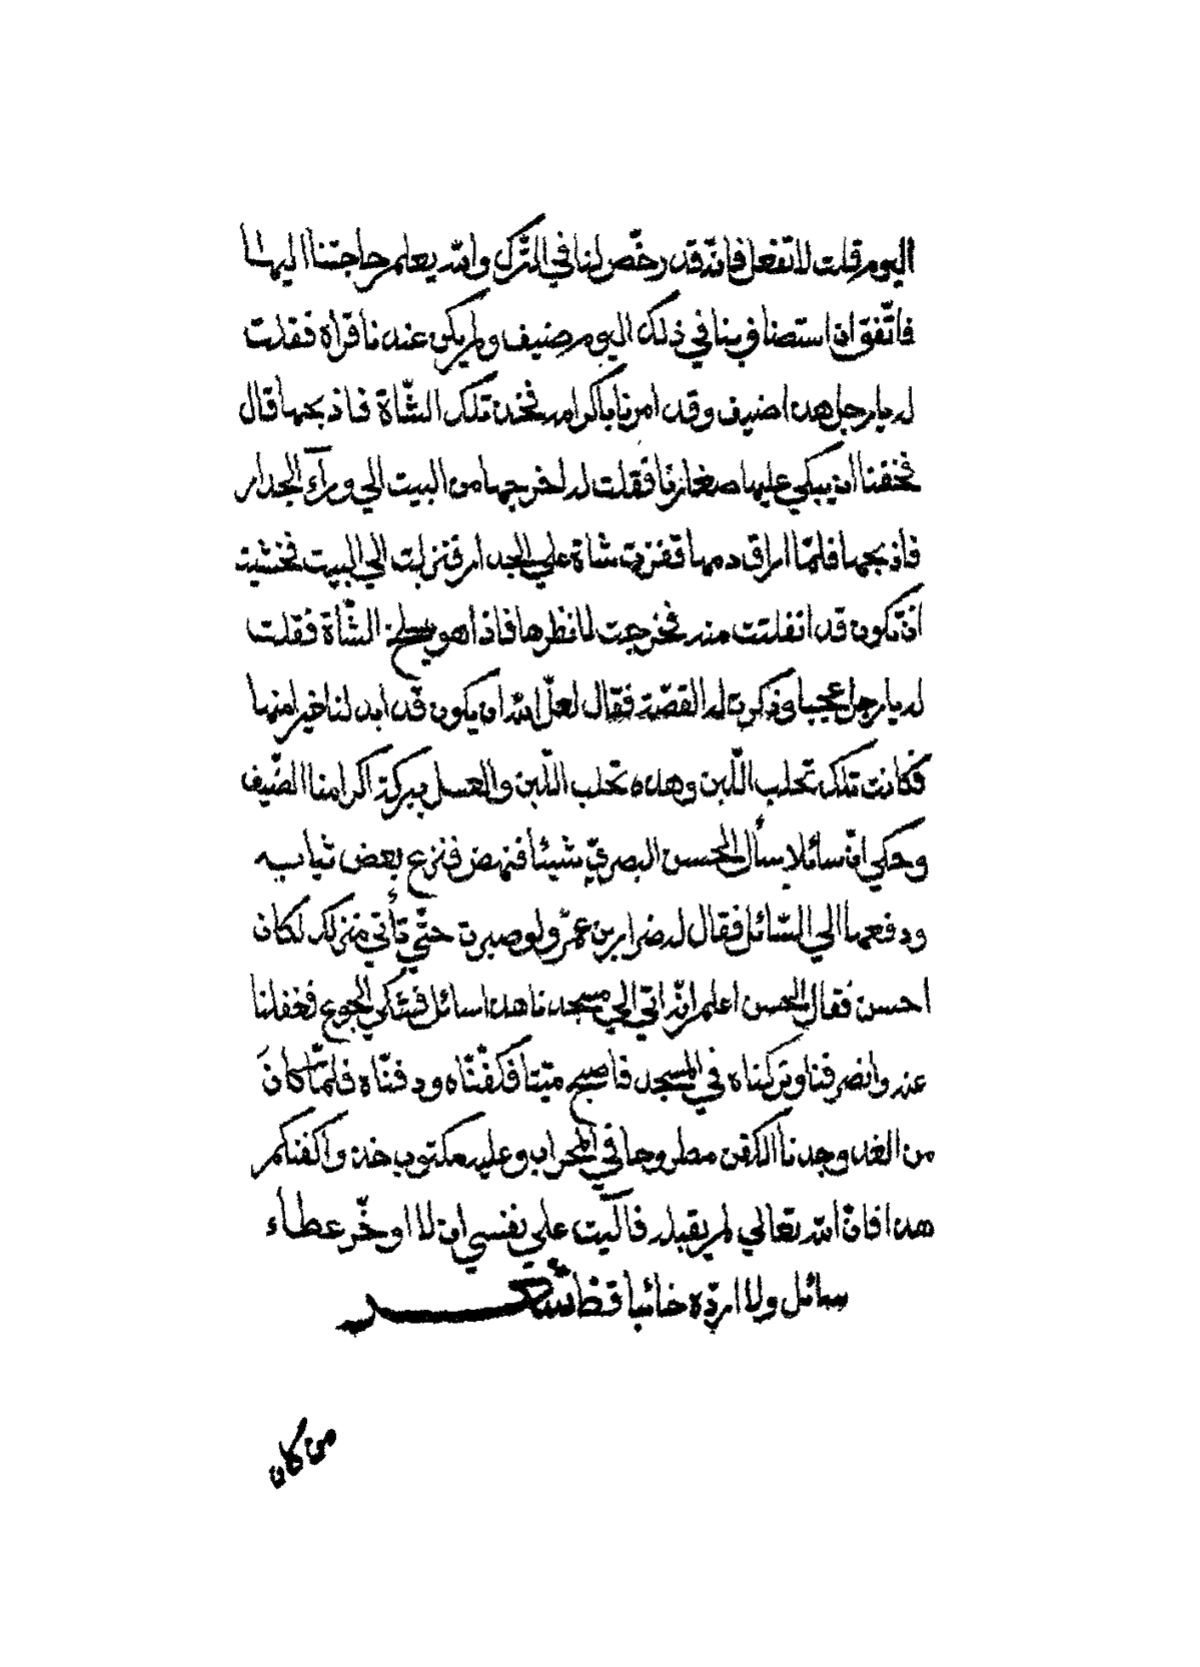 اليوم قلت لا تفعل فانّه قد رخّص لنا في التّرك والله يعلم حاجتنا اليها
فاتّفق ان استضاف بنا في ذلك اليوم ضيف ولم يكن عندنا قراه فقلت
له يا رجل هذا ضيف وقد امرنا باكرامه فخذ تلك الشّاة فاذبحها قال
فخفنا ان يبكي عليها صغارنا فقلت له اخرجها من البيت الي ورآء الجدار
فاذبحها فلمّا اراق دمها قفزت شاة علي الجدار فنزلت الي البيت فخشيت
ان تكون قد انفلتت منه فخرجت لانظرها فاذا هو يسلخ الشّاة فقلت
له يا رجل عجبا وذكرت له القصّة فقال لعلّ الله ان يكون قد ابدلنا خيرا منها
فكانت تلك تحلب اللّبن وهذه تحلب اللّبن والعسل ببركة اكرامنا الضّيف
وحكي انّ سائلا سأل الحسن البصريّ شيئا فنهض فنزع بعض ثيابه
ودفعها الي السّائل فقال له ضرار بن عمرو لو صبرت حتّي تأتي منزلك لكان
احسن فقال الحسن اعلم انّه اتي الي مسجدنا هذا سائل فشكي الجوع فغفلنا
عنه وانصرفنا وتركناه في المسجد فاصبح ميّتا فكفنّاه ودفنّاه فلمّا كان
من الغد وجدنا الكفن مطروحا في المحراب وعليه مكتوب خذوا كفنكم
هذا فانّ الله تعالي لم يقبله فآليت علي نفسي ان لا اوخّر عطاء
سائل ولا اردّه خائبا قط
من كان